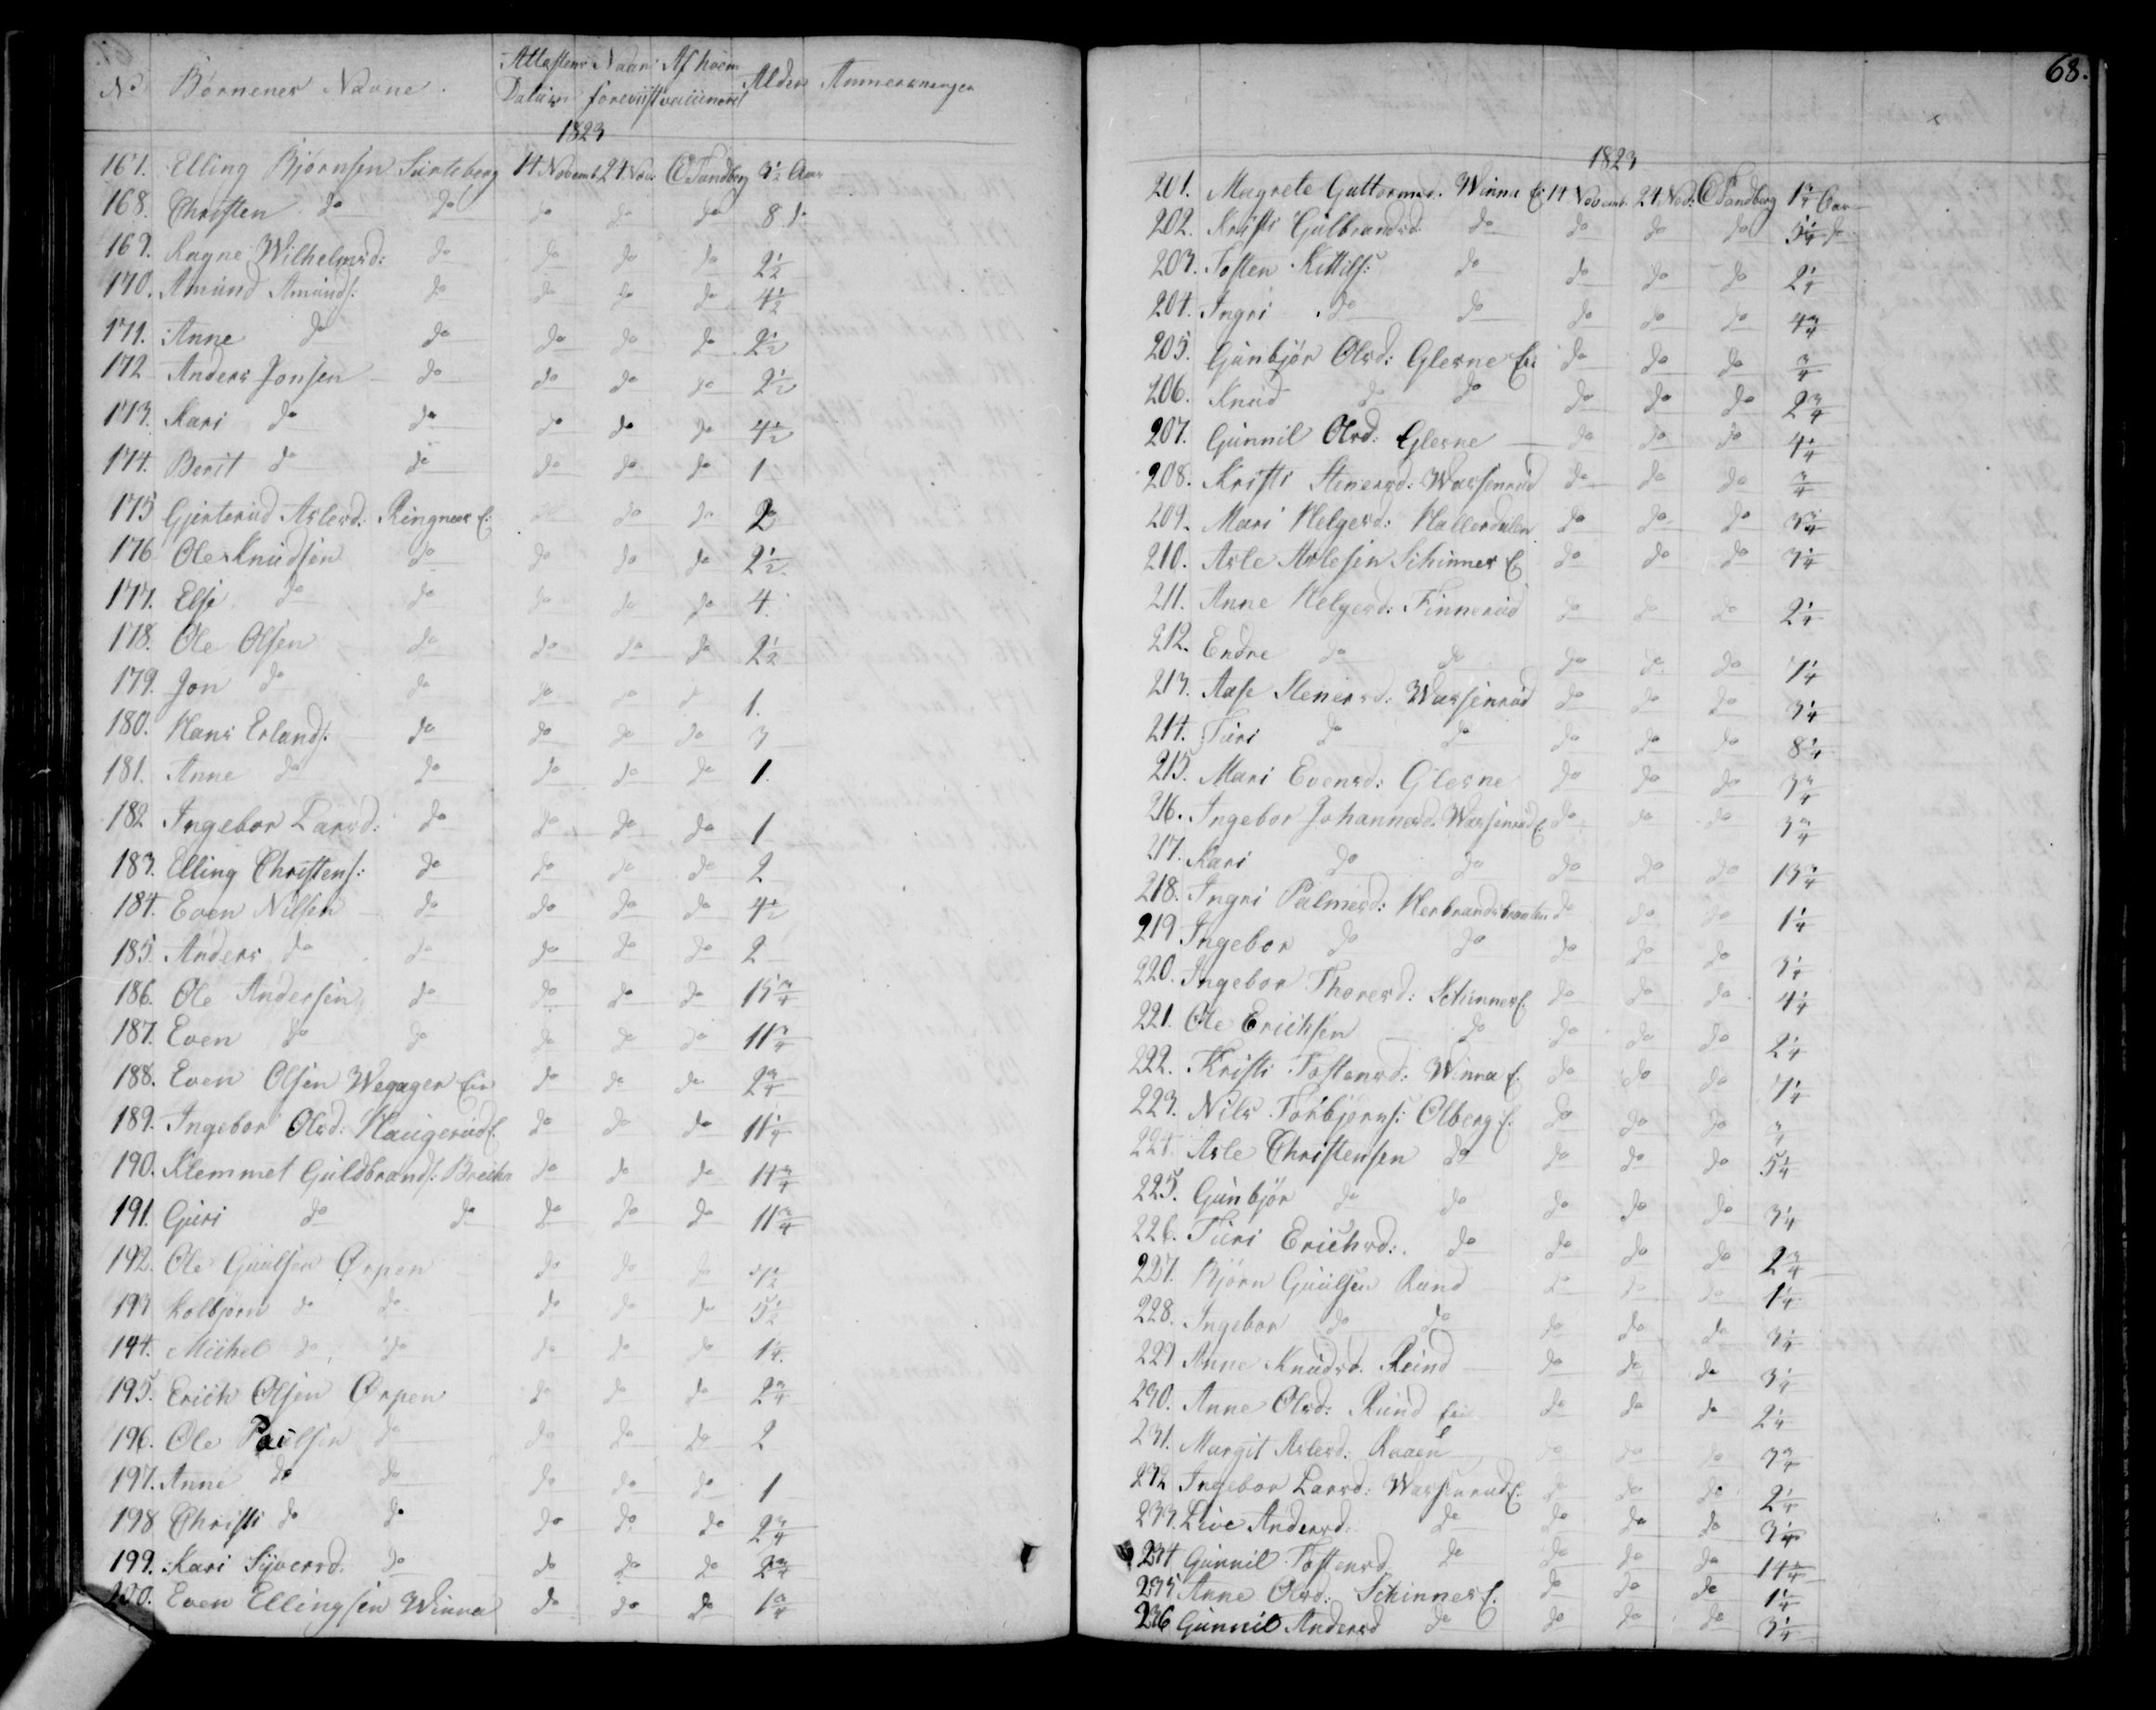 No Børnenes Navne. Attestens Datum Naar forevist Af hvem vaccineret Alder Anmerkninger
1823
167. Elling Bjørnsen Surteberg 14 Novemb. 24 Nov: C Sandberg 3½ Aar
168. Christen do do do do do 8 do
169. Ragne Wilhelmsd: do do do do 2½
170. Amund Amunds: do do do do 4½
171. Anne do do do do do 2½
172 Anders Jonsen do do do do 2½
173. Kari do do do do do 4½
174. Berit do do do do do 1
175 Gjertrud Aslesd: Ringnes E: do do do 2
176 Ole Knudsen do do do do 2½
177. Elsi do do do do do 4.
178. Ole Olsen do do do do 2½
179. Jon do do do do do 1.
180. Hans Erlands: do do do do 3
181. Anne do do do do do 1.
182 Ingebor Larsd: do do do do 1
183. Elling Christens: do do do do 2
184. Even Nilsen do do do do 4½
185. Anders do do do do do 2
186. Ole Andersen do do do do 15¾
187. Even do do do do do 11¾
188. Even Olsen Wegager Eie do do do 2¾
189. Ingebor Olsd: Haugerud E. do do do 11¼
190. Klemmet Guldbrands: Breiha do do do 14¾
191. Guri do do do do do 11¾
192. Ole Guulsen Ørpen do do do 7½
193 Kolbjørn do do do do do 5½
194. Michel do do do do do 1¼.
195. Erich Olsen Ørpen do do do 2¾
196. Ole Paulsen do do do do 2
197. Anne do do do do do 1
198 Christi do do do do do 2¾
199. Kari Syversd. do do do do 2¾
200. Even Ellingsen Winna do do do 1¾
68.
1823
201. Magrete Guttormsd. Winna E: 14 Novemb. 24 Nov: C Sandberg 1¾ Aar
202. Kristi Gulbrandsd. do do do do 5¼ do
203. Tosten Kittils: do do do do 2¼
204. Ingri do do do do do 4¾
205. Gunbjør Olsd: Glesne Eie do do do ¾
206. Knud do do do do do 2¾
207. Gunnil Olsd: Glesne do do do 4¼
208. Kristi Stenersd: Wassenrud do do do ¾
209. Mari Helgesd: Hallerdalen do do do 3¼
210. Asle Aslesen Schinnes E do do do 3¼
211. Anne Helgesd: Finnerud do do do 2¼
212. Endre do do do do do 7¼
213. Aase Stenersd: Wassenrud do do do 3¼
214. Turi do do do do do 8¼
215. Mari Evensd: Glesne do do do 3¾
216. Ingebor Johannesd. Wassenrud E. do do do 3¾
217. Kari do do do do do 13¾
218. Ingri Palmesd: Herbrandsbraaten do do do 1¼
219 Ingebor do do do do do 3¼
220. Ingebor Thoresd: Schinnes E. do do do 4¼
221. Ole Erichsen do do do do 2¼
222. Kristi Tostensd: Winna E. do do do 7¼
223. Nils Torbjørns: Olberg E. do do do ¾
224. Asle Christensen do do do do 5¼
225. Gunbjør do do do do do 3¼
226. Turi Erichsd: do do do do 2¾
227. Bjørn Guulsen Rund do do do 1¼
228. Ingebor do do do do do 3¼
229 Anne Knudsd. Rund do do do 3¼
230. Anne Olsd: Rund Eie do do do 2¼
231. Margit Aslesd: Raaen do do do 3¾
232 Ingebor Larsd: Wassenrud E. do do do 2¼
233. Live Andersd. do do do do 3¼
234 Gunnil Tostensd. do do do do 14¼
235 Anne Olsd: Schinnes E. do do do 1¼
236 Gunnil Andersd do do do do 3¼